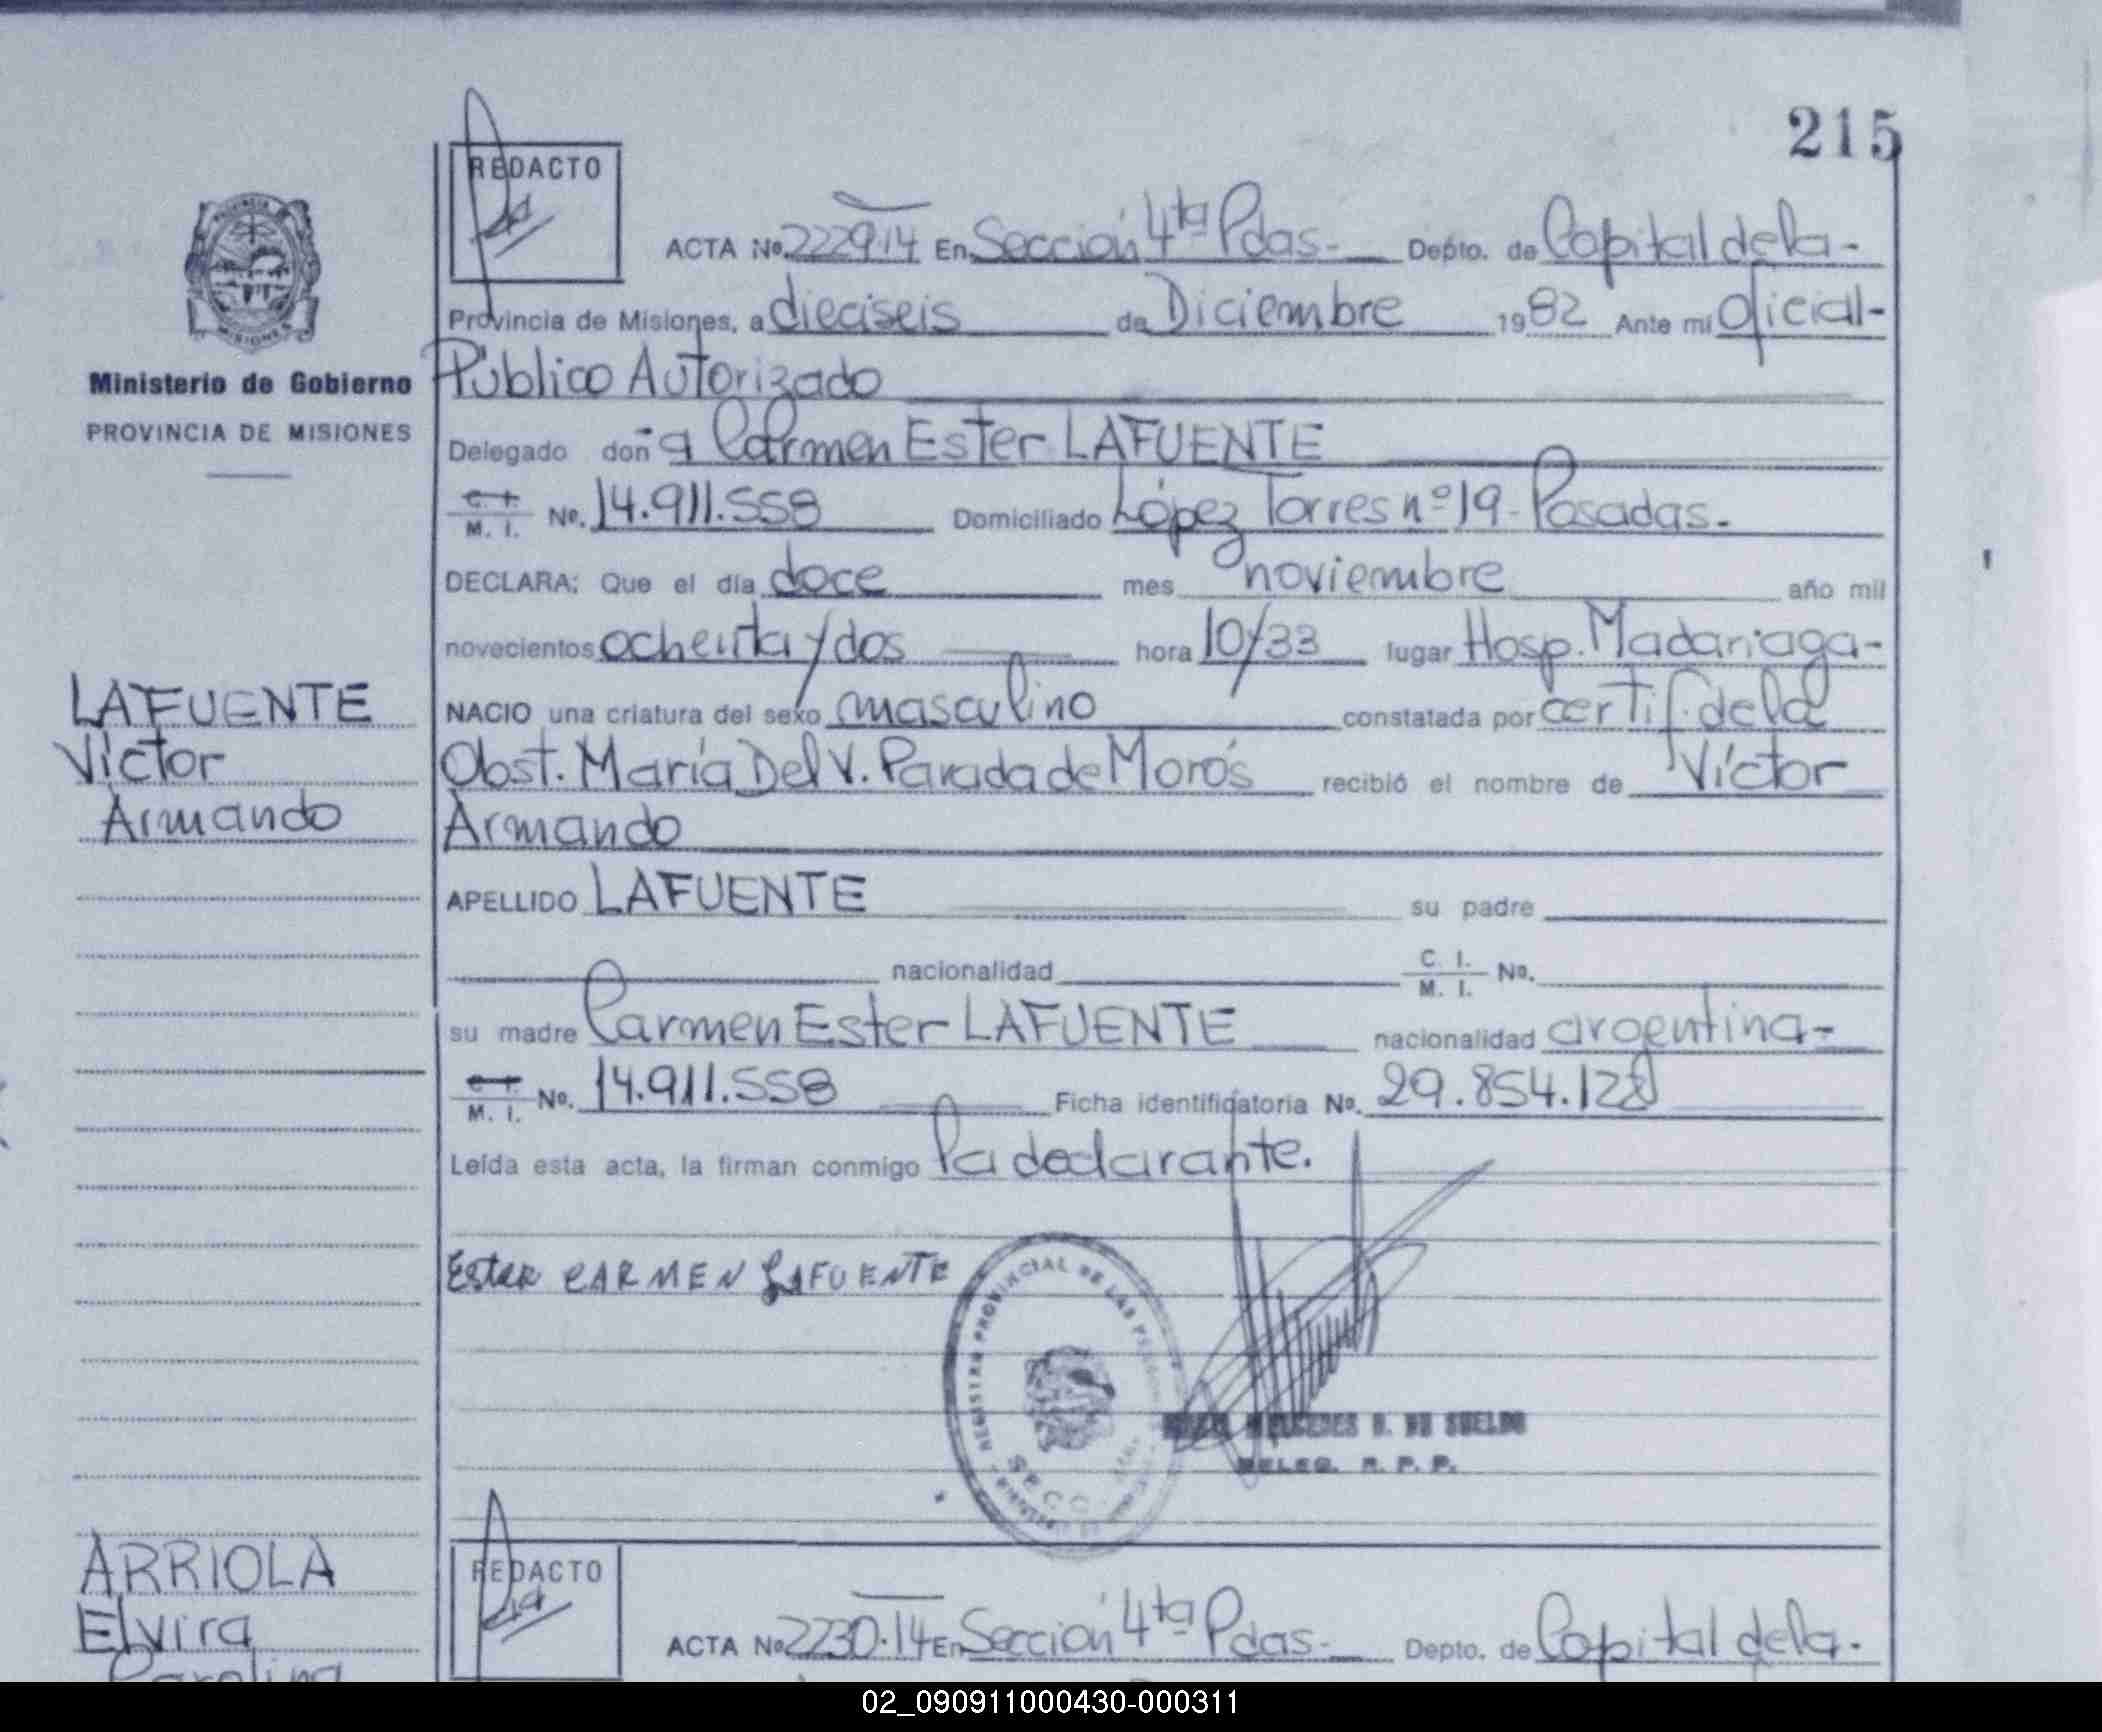 215
REDACTO
ACTA No. 2229·14 En Sección 4ta Pdas- Depto. de Capital dela-
Provincia de Misiones, a dieciseis de Diciembre 1982 Ante mi Oficial-
Ministerio de Gobierno
PROVINCIA DE MISIONES
Público Autorizado
Delegado doña Carmen Ester LAFUENTE
C. I. / M. I. No. 14.911.558 Domiciliado López Torres nº 19- Posadas.
DECLARA: Que el día doce mes noviembre año mil
novecientos ochenta y dos hora 10/33 lugar Hosp. Madariaga-
LAFUENTE
Víctor
Armando
NACIO una criatura del sexo masculino constatada por certif. dela
Obst. María Del V. Parada de Morós recibió el nombre de Víctor
Armando
APELLIDO LAFUENTE su padre
nacionalidad C. I. / M. I. No.
su madre Carmen Ester LAFUENTE nacionalidad argentina-
C. I. / M. I. No. 14.911.558 Ficha identificatoria No. 29.854.128
Leída esta acta, la firman conmigo la declarante.
Ester CARMEN LAFUENTE
REGISTRO PROVINCIAL DE LAS
SECC
DELEG. R. P. P.
ARRIOLA
Elvira
Carolina
REDACTO
ACTA No 2230·14 En Sección 4ta Pdas- Depto. de Capital dela-
02_090911000430-000311